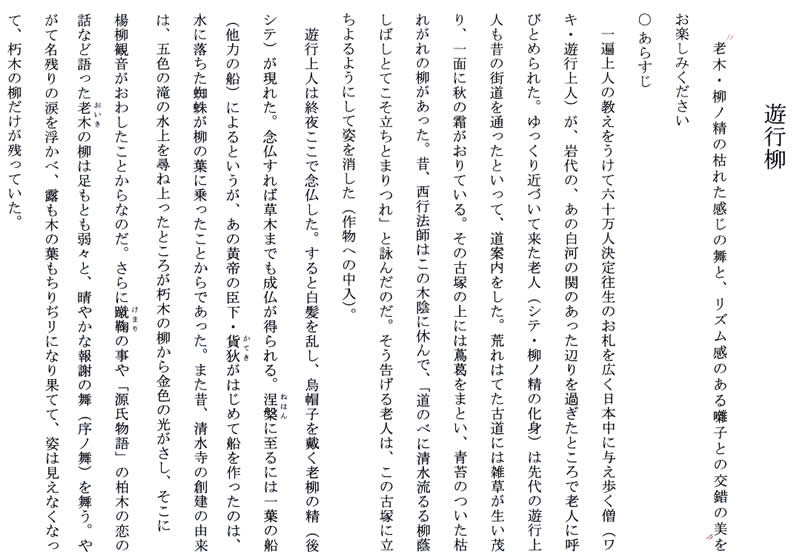 遊行柳
〝老木・柳ノ精の枯れた感じの舞と、リズム感のある囃子との交錯の美〟を
お楽しみください
〇あらすじ
一遍上人の教えをうけて六十万人決定往生のお札を広く日本中に与え歩く僧（ワ
キ・遊行上人）が、岩代の、あの白河の関のあった辺りを過ぎたところで老人に呼
びとめられた。ゆっくり近づいて来た老人（シテ・柳ノ精の化身）は先代の遊行上
人も昔の街道を通ったといって、道案内をした。荒れはてた古道には雑草が生い茂
り、一面に秋の霜がおりている。その古塚の上には蔦葛をまとい、青苔のついた枯
れがれの柳があった。昔、西行法師はこの木陰に休んで、「道のべに清水流るる柳蔭
しばしとてこそ立ちとまりつれ」と詠んだのだ。そう告げる老人は、この古塚に立
ちよるようにして姿を消した（作物への中入）。
遊行上人は終夜ここで念仏した。すると白髪を乱し、烏帽子を戴く老柳の精（後
シテ）が現れた。念仏すれば草木までも成仏が得られる。涅槃に至るには一葉の船
ねはん
（他力の船）によるというが、あの黄帝の臣下・貨狄がはじめて船を作ったのは、
かてき
水に落ちた蜘蛛が柳の葉に乗ったことからであった。また昔、清水寺の創建の由来
は、五色の滝の水上を尋ね上ったところが朽木の柳から金色の光がさし、そこに
楊柳観音がおわしたことからなのだ。さらに蹴鞠の事や「源氏物語」の柏木の恋の
けまり
話など語った老木の柳は足もとも弱々と、晴やかな報謝の舞（序ノ舞）を舞う。や
おいき
がて名残りの涙を浮かべ、露も木の葉もちりぢりになり果てて、姿は見えなくなっ
て、朽木の柳だけが残っていた。